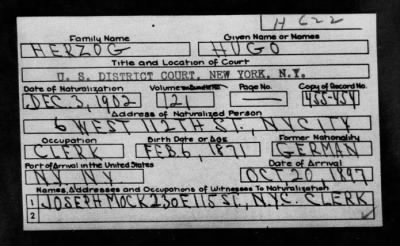 H 622
Family Name Given Name or Names
HERZOG HUGO
Title and Location of Court
U. S. DISTRICT COURT, NEW YORK, N.Y.
Date of Naturalization Volume Page No. Copy of Record No.
DEC. 3, 1902 121 — 455-454
Address of Naturalized Person
6 WEST 112TH ST., NYCITY
Occupation Birth Date or Age Former Nationality
CLERK FEB. 6, 1871 GERMAN
Port of Arrival in the United States Date of Arrival
NY, NY OCT 20, 1897
Names, Addresses and Occupations of Witnesses To Naturalization
1 JOSEPH MOCK 230 E 115 ST., NYC. CLERK
2